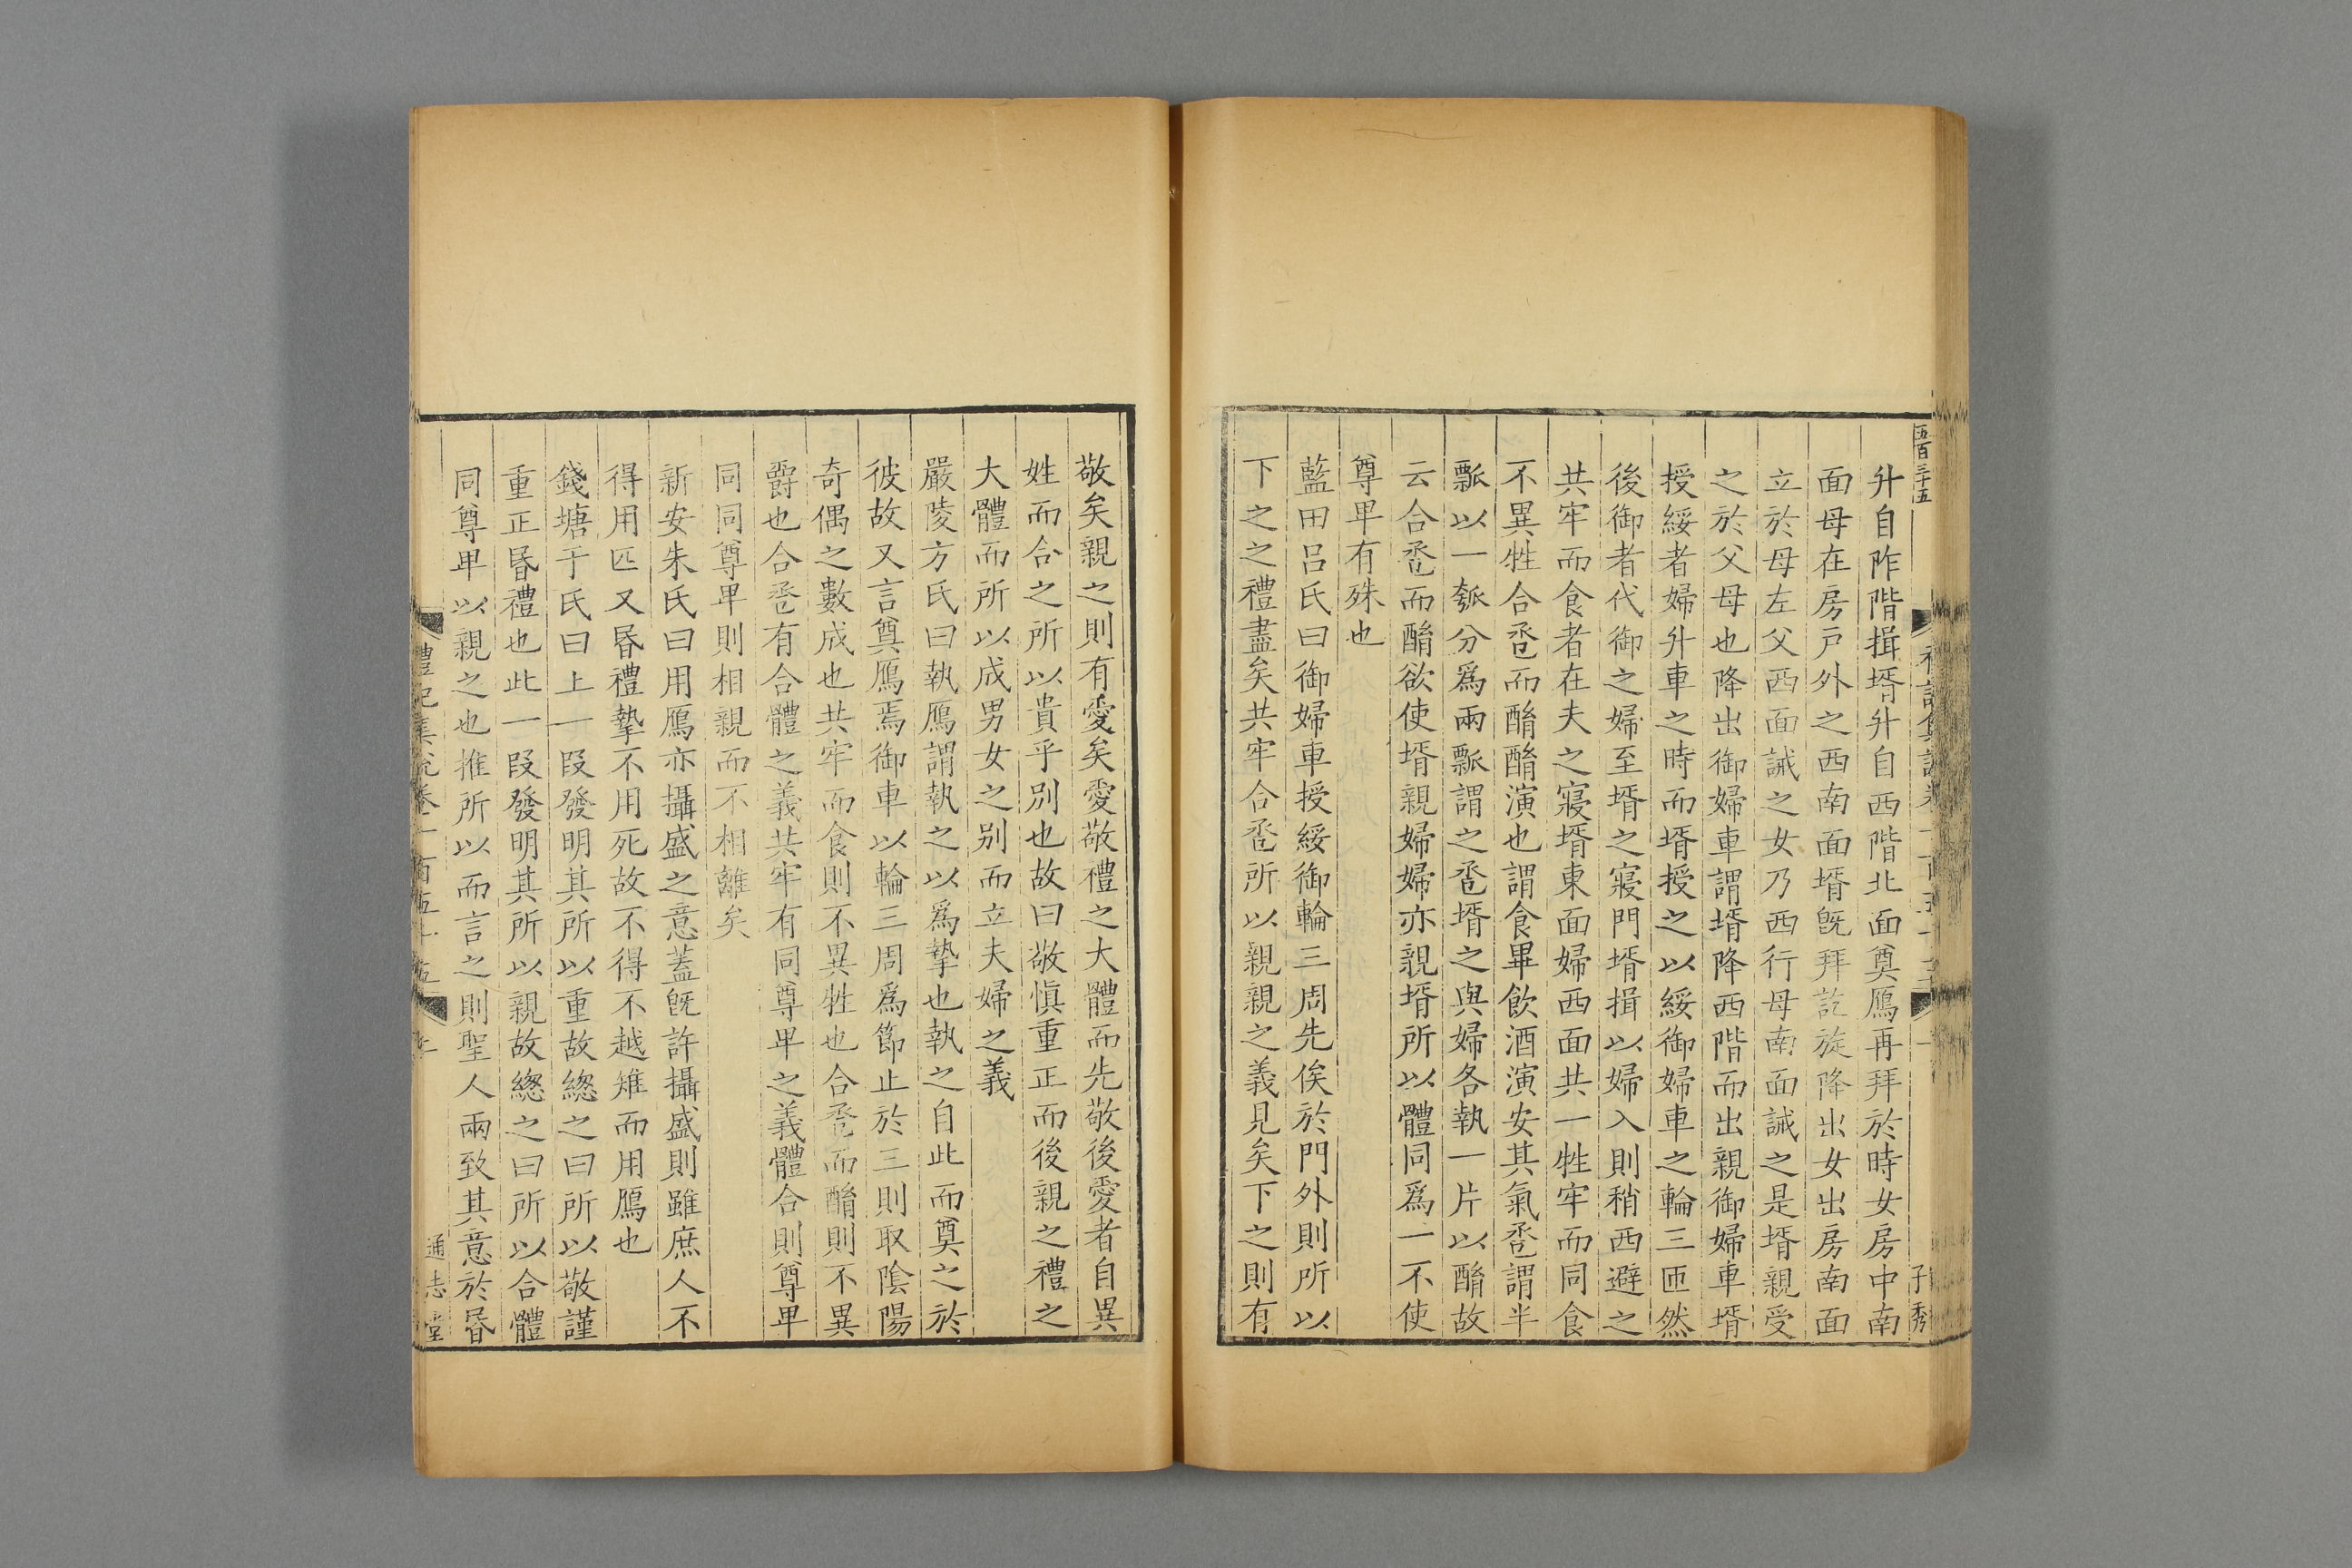 五百三十五
孑秀
升自阼階揖壻升自西階北面奠鴈再拜於時女房中南
面母在房戸外之西南面壻旣拜訖旋降出女出房南面
立於母左父西面誡之女乃西行母南面誡之是壻親受
之於父母也降出御婦車謂壻降西階而出親御婦車壻
授綏者婦升車之時而壻授之以綏御婦車之輪三匝然
後御者代御之婦至壻之寢門壻揖以婦入則稍西避之
共牢而食者在夫之寢壻東面婦西面共一牲牢而同食
不異牲合巹而酳酳演也謂食畢飲酒演安其氣巹謂半
瓢以一瓠分爲兩瓢謂之巹壻之與婦各執一片以酳故
云合巹而酳欲使壻親婦婦亦親壻所以體同爲一不使
尊卑有殊也
藍田呂氏曰御婦車授綏御輪三周先俟於門外則所以
下之之禮盡矣共牢合巹所以親親之義見矣下之則有
敬矣親之則有愛矣愛敬禮之大體而先敬後愛者自異
姓而合之所以貴乎别也故曰敬愼重正而後親之禮之
大體而所以成男女之别而立夫婦之義
嚴陵方氏曰執鴈謂執之以爲摯也執之自此而奠之於
彼故又言奠鴈焉御車以輪三周爲節止於三則取陰陽
奇偶之數成也共牢而食則不異牲也合巹而酳則不異
爵也合巹有合體之義共牢有同尊卑之義體合則尊卑
同同尊卑則相親而不相離矣
新安朱氏曰用鴈亦攝盛之意蓋旣許攝盛則雖庶人不
得用匹又昏禮摯不用死故不得不越雉而用鴈也
錢塘于氏曰上一段發明其所以重故總之曰所以敬謹
重正昏禮也此一段發明其所以親故總之曰所以合體
同尊卑以親之也推所以而言之則聖人兩致其意於昏
禮記集說卷一百五十五
通志堂